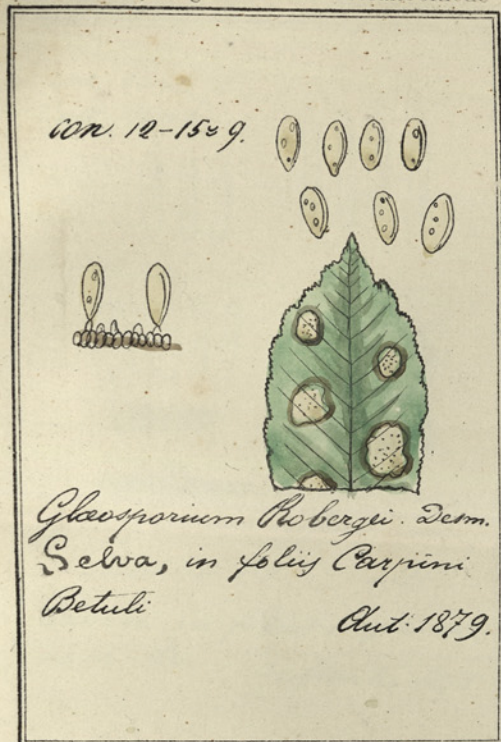 con. 12-15≈9.
Glœosporium Robergei. Desm.
Selva, in foliis Carpini
Betuli
Aut. 1879.